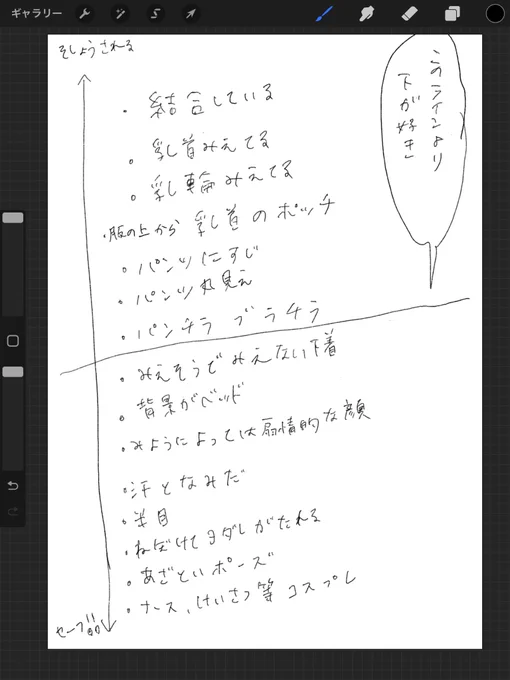 ギャラリー
そしょうされる
このラインより
下が好き
・結合している
・乳首みえてる
・乳輪みえてる
・服の上から 乳首のポッチ
・パンツにすじ
・パンツ丸見え
・パンチラ ブラチラ
・みえそうでみえない下着
・背景がベッド
・みようによっては扇情的な顔
・汗となみだ
・半目
・ねぼけてヨダレがたれる
・あざといポーズ
・ナース、けいさつ等コスプレ
セーフ的